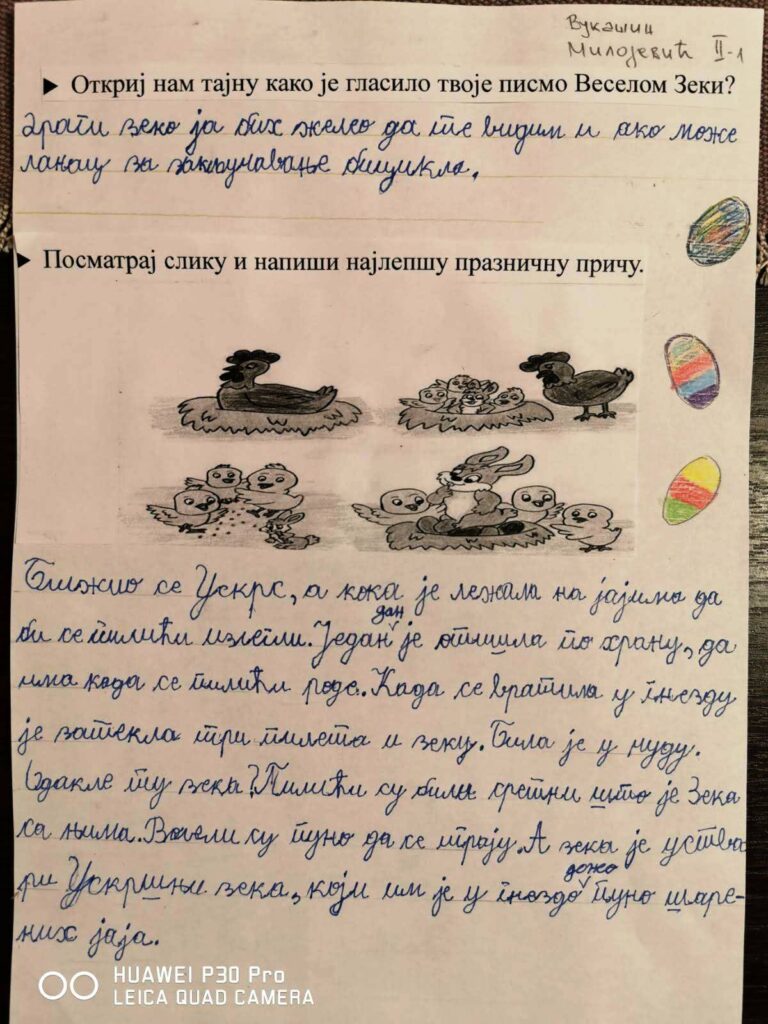 Вукашин
Милојевић II-1
► Откриј нам тајну како је гласило твоје писмо Веселом Зеки?
Драги зеко ја бих желео да те видим и ако може
ланац за закључавање бицикла.
► Посматрај слику и напиши најлепшу празничну причу.
Ближио се Ускрс, а кока је лежала на јајима да
дан
би се пилићи излегли. Један је отишла по храну, да
има када се пилићи роде. Када се вратила у гнезду
је затекла три пилета и зеку. Била је у чуду.
Одакле ту зека? Пилићи су били срећни што је Зека
са њима. Волели су пуно да се играју. А зека је уства
ри Ускршњи зека, који им је у гнездо пуно шаре-
доно
них јаја.
HUAWEI P30 Pro
LEICA QUAD CAMERA